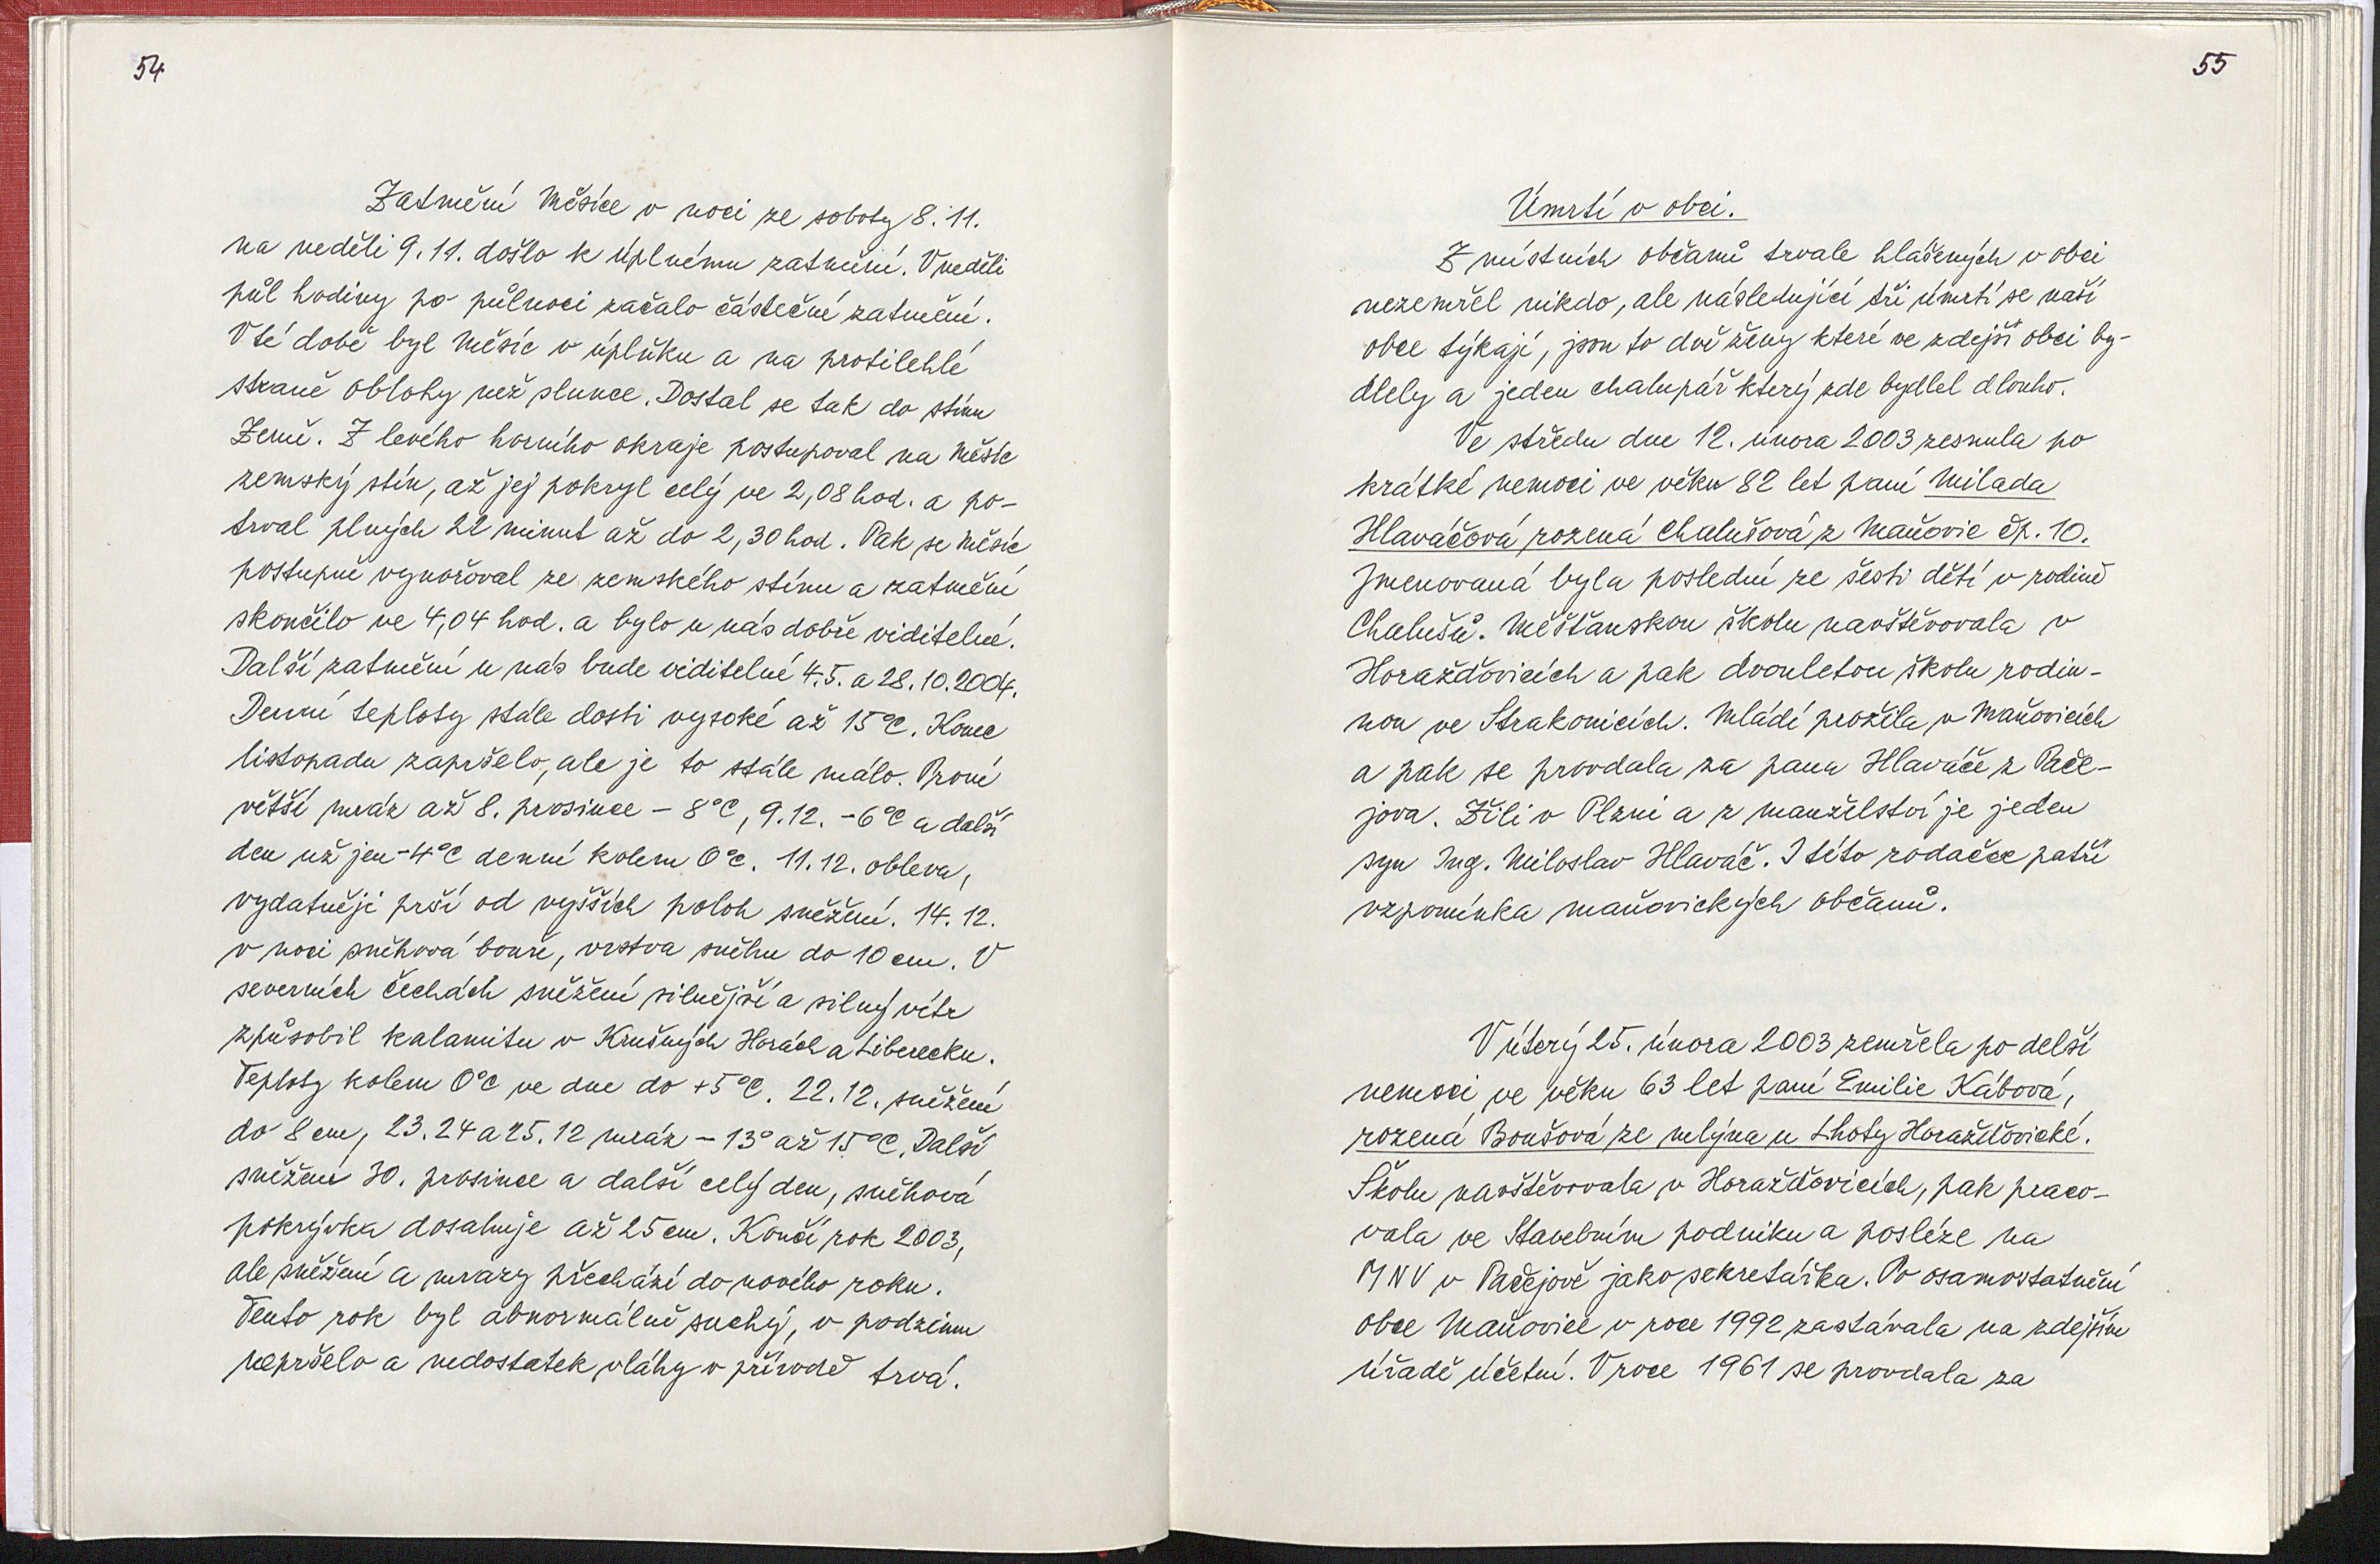 54
Zatmění Měsíce v noci ze soboty 8.11.
na neděli 9.11. došlo k úplnému zatmění. V neděli
půl hodiny po půlnoci začalo částečné zatmění.
V té době byl Měsíc v úplňku a na protilehlé
straně oblohy než slunce. Dostal se tak do stínu
Země. Z levého horního okraje postupoval na Měsíc
zemský stín, až jej pokryl celý ve 2,08 hod. a po-
trval plných 22 minut až do 2,30 hod. Pak se Měsíc
postupně vynořoval ze zemského stínu a zatmění
skončilo ve 4,04 hod. a bylo u nás dobře viditelné.
Další zatmění u nás bude viditelné 4.5. a 28.10.2004.
Denní teploty stále dosti vysoké až 15°C. Konec
listopadu zapršelo, ale je to stále málo. První
větší mráz až 8. prosince – 8°C, 9.12. -6°C a další
den už jen -4°C denní kolem 0°C. 11.12. obleva,
vydatněji prší od vyšších poloh sněžení. 14.12.
v noci sněhová bouře, vrstva sněhu do 10 cm. V
severních Čechách sněžení silnější a silný vítr
způsobil kalamitu v Krušných Horách a Liberecku.
Teploty kolem 0°C ve dne do +5°C. 22.12. sněžení
do 8 cm, 23.24 a 25.12 mráz – 13° až 15°C. Další
sněžení 30. prosince a další celý den, sněhová
pokrývka dosahuje až 25 cm. Končí rok 2003,
ale sněžení a mrazy přechází do nového roku.
Tento rok byl abnormálně suchý, v podzimu
nepršelo a nedostatek vláhy v přírodě trvá.
55
Úmrtí v obci.
Z místních občanů trvale hlášených v obci
nezemřel nikdo, ale následující tři úmrtí se naší
obce týkají, jsou to dvě ženy které ve zdejší obci by-
dlely a jeden chalupář který zde bydlel dlouho.
Ve středu dne 12. února 2003 zesnula po
krátké nemoci ve věku 82 let paní Milada
Hlaváčová rozená Chalušová z Maňovic čp. 10.
Jmenovaná byla poslední ze šesti dětí v rodině
Chalušů. Měšťanskou školu navštěvovala v
Horažďovicích a pak dvouletou školu rodin-
nou ve Strakonicích. Mládí prožila v Maňovicích
a pak se provdala za pana Hlaváče z Pače-
jova. Žili v Plzni a z manželství je jeden
syn Ing. Miloslav Hlaváč. I této rodačce patří
vzpomínka maňovických občanů.
V úterý 25. února 2003 zemřela po delší
nemoci ve věku 63 let paní Emilie Kábová,
rozená Boušová ze mlýna u Lhoty Horažďovické.
Školu navštěvovala v Horažďovicích, pak praco-
vala ve Stavebním podniku a posléze na
MNV v Pačejově jako sekretářka. Po osamostatnění
obce Maňovice v roce 1992 zastávala na zdejším
úřadě účetní. V roce 1961 se provdala za